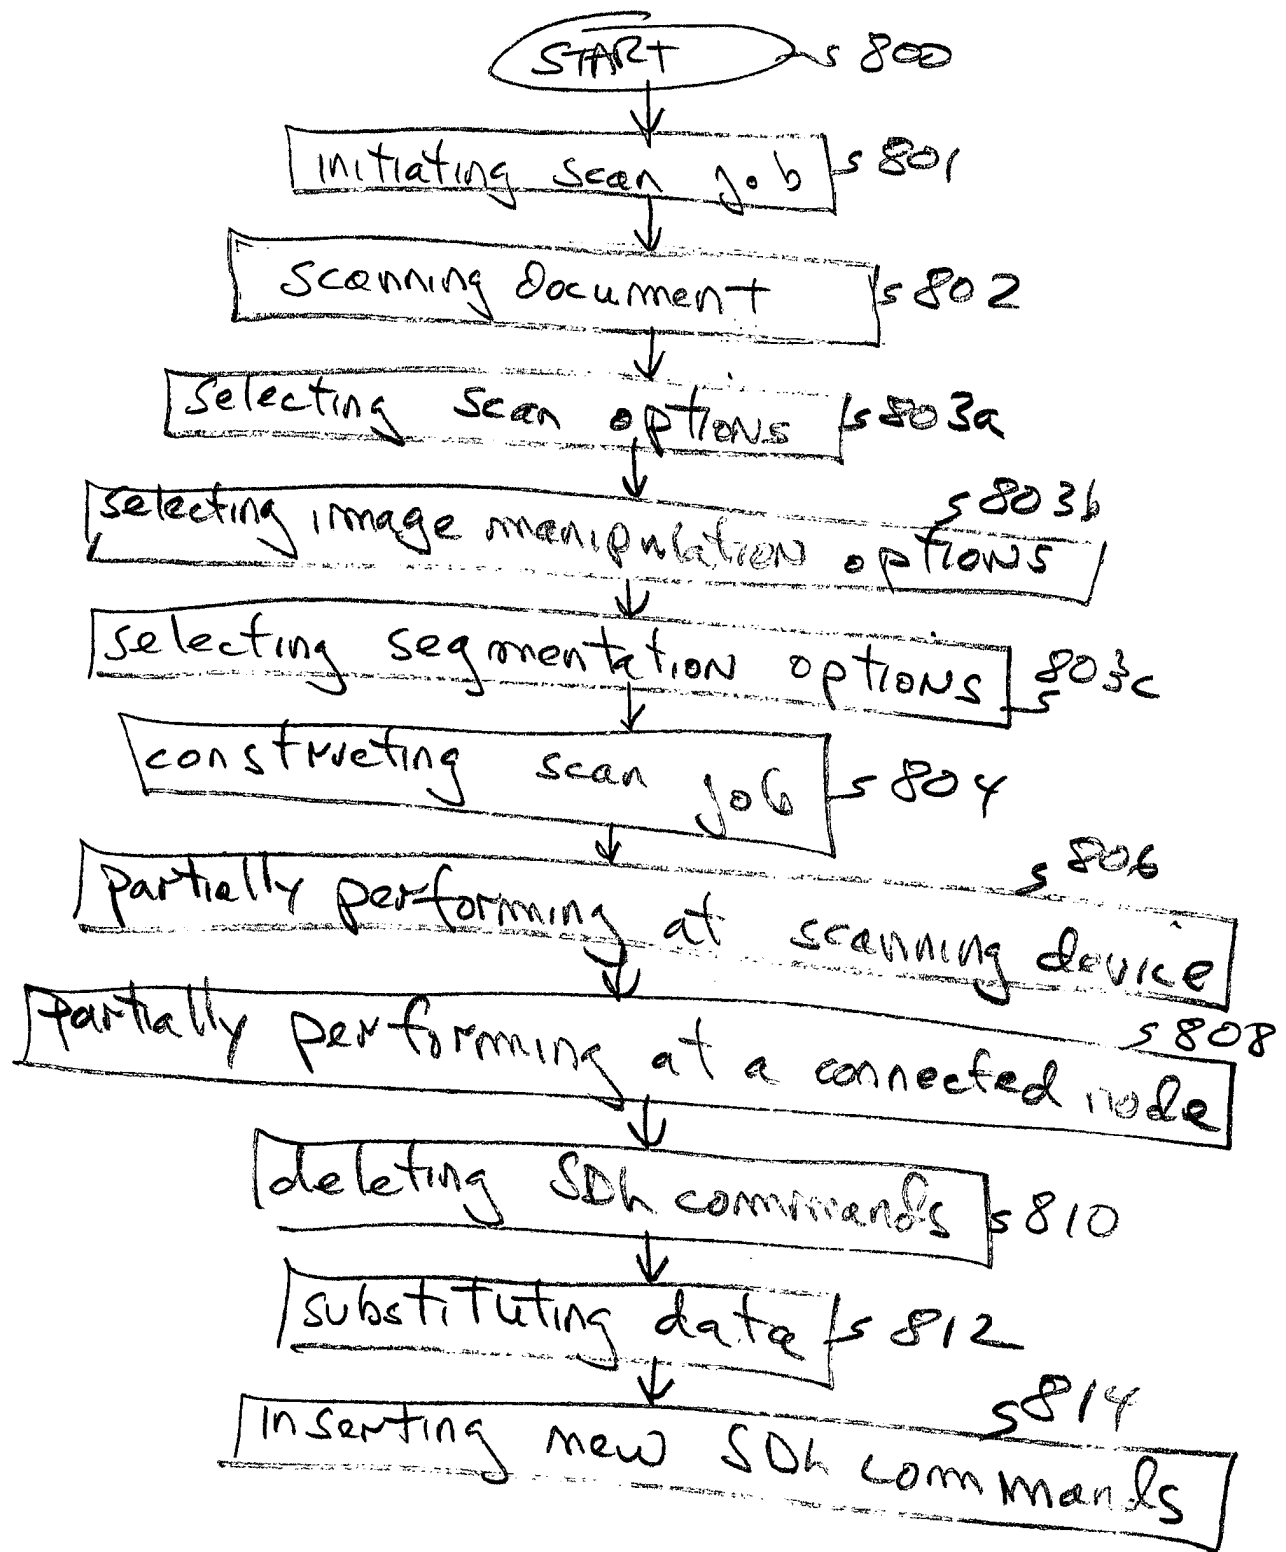 START s 800
initiating scan job s 801
scanning document s 802
selecting scan options s 803a
s 803b
selecting image manipulation options
selecting segmentation options s 803c
constructing scan job s 804
s 806
partially performing at scanning device
s 808
partially performing at a connected node
deleting SDL commands s 810
substituting data s 812
s 814
inserting new SDL commands